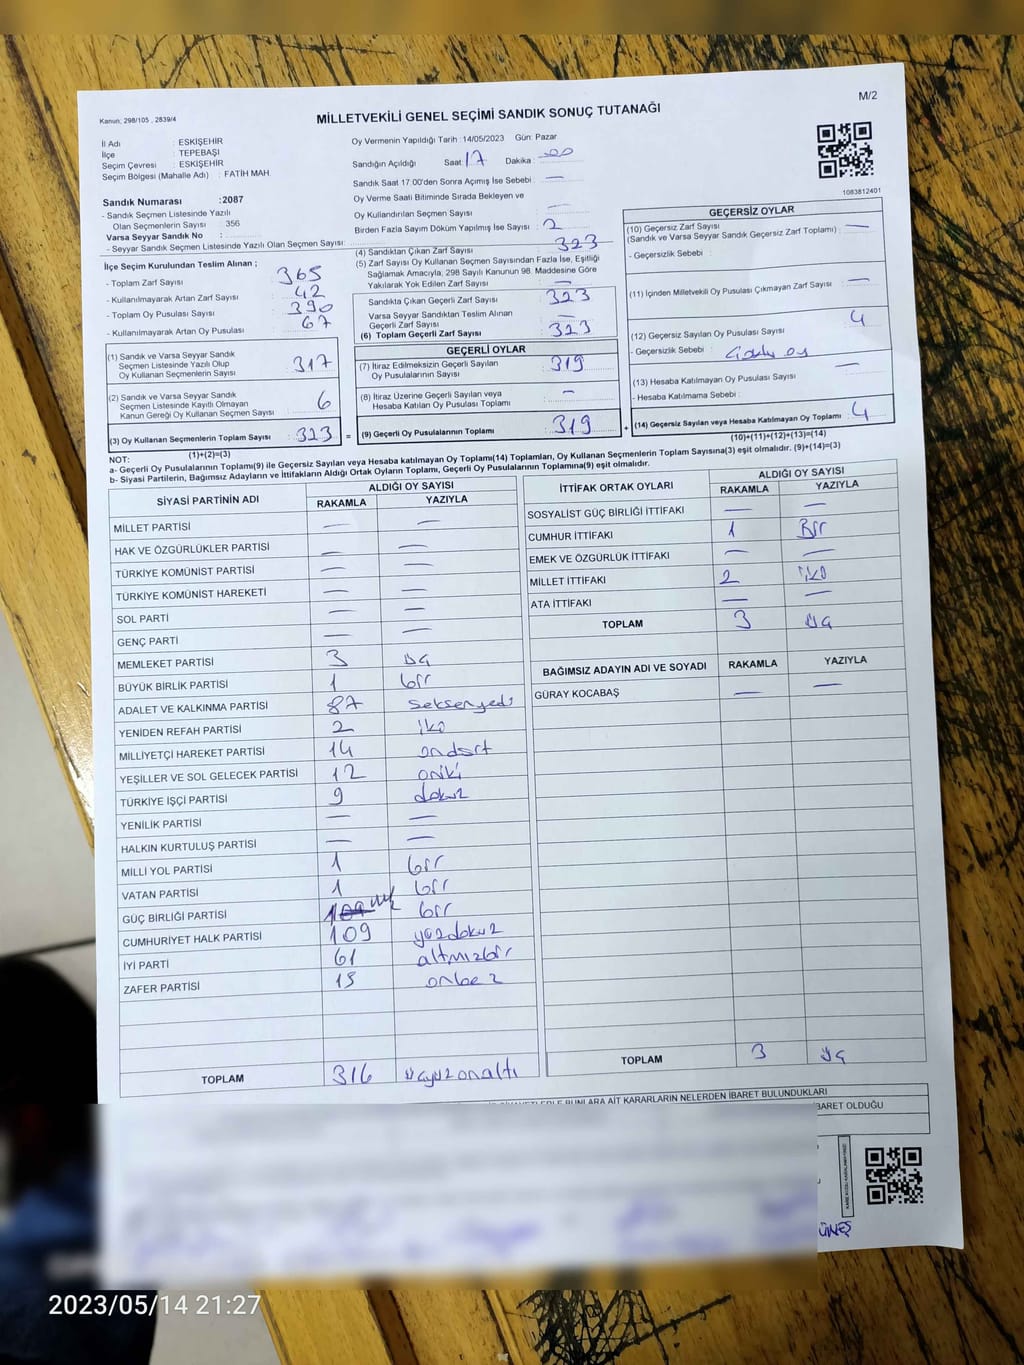 M/2
Kanun; 298/105 , 2839/4
MİLLETVEKİLİ GENEL SEÇİMİ SANDIK SONUÇ TUTANAĞI
İl Adı : ESKİŞEHİR
İlçe : TEPEBAŞI
Seçim Çevresi : ESKİŞEHİR
Seçim Bölgesi (Mahalle Adı) : FATİH MAH.
Sandık Numarası :2087
- Sandık Seçmen Listesinde Yazılı
Olan Seçmenlerin Sayısı : 356
Varsa Seyyar Sandık No :
- Seyyar Sandık Seçmen Listesinde Yazılı Olan Seçmen Sayısı:
Oy Vermenin Yapıldığı Tarih :14/05/2023 Gün: Pazar
Sandığın Açıldığı Saat 17 Dakika : 00
Sandık Saat 17:00'den Sonra Açımış İse Sebebi : —
Oy Verme Saati Bitiminde Sırada Bekleyen ve
Oy Kullandırılan Seçmen Sayısı : —
Birden Fazla Sayım Döküm Yapılmış İse Sayısı : 2
1083812401
İlçe Seçim Kurulundan Teslim Alınan ;
- Toplam Zarf Sayısı : 365
- Kullanılmayarak Artan Zarf Sayısı : 42
- Toplam Oy Pusulası Sayısı : 390
- Kullanılmayarak Artan Oy Pusulası : 67
(1) Sandık ve Varsa Seyyar Sandık
Seçmen Listesinde Yazılı Olup
Oy Kullanan Seçmenlerin Sayısı : 317
(2) Sandık ve Varsa Seyyar Sandık
Seçmen Listesinde Kayıtlı Olmayan
Kanun Gereği Oy Kullanan Seçmen Sayısı : 6
(3) Oy Kullanan Seçmenlerin Toplam Sayısı : 323
(1)+(2)=(3)
(4) Sandıktan Çıkan Zarf Sayısı : 323
(5) Zarf Sayısı Oy Kullanan Seçmen Sayısından Fazla İse, Eşitliği
Sağlamak Amacıyla, 298 Sayılı Kanunun 98. Maddesine Göre
Yakılarak Yok Edilen Zarf Sayısı : —
Sandıkta Çıkan Geçerli Zarf Sayısı : 323
Varsa Seyyar Sandıktan Teslim Alınan
Geçerli Zarf Sayısı : —
(6) Toplam Geçerli Zarf Sayısı : 323
GEÇERLİ OYLAR
(7) İtiraz Edilmeksizin Geçerli Sayılan
Oy Pusulalarının Sayısı : 319
(8) İtiraz Üzerine Geçerli Sayılan veya
Hesaba Katılan Oy Pusulası Toplamı : —
= (9) Geçerli Oy Pusulalarının Toplamı : 319
GEÇERSİZ OYLAR
(10) Geçersiz Zarf Sayısı : —
(Sandık ve Varsa Seyyar Sandık Geçersiz Zarf Toplamı)
- Geçersizlik Sebebi :
(11) İçinden Milletvekili Oy Pusulası Çıkmayan Zarf Sayısı : —
(12) Geçersiz Sayılan Oy Pusulası Sayısı : 4
- Geçersizlik Sebebi : oy
(13) Hesaba Katılmayan Oy Pusulası Sayısı : —
- Hesaba Katılmama Sebebi :
+ (14) Geçersiz Sayılan veya Hesaba Katılmayan Oy Toplamı : 4
(10)+(11)+(12)+(13)=(14)
NOT:
a- Geçerli Oy Pusulalarının Toplamı(9) ile Geçersiz Sayılan veya Hesaba katılmayan Oy Toplamı(14) Toplamları, Oy Kullanan Seçmenlerin Toplam Sayısına(3) eşit olmalıdır. (9)+(14)=(3)
b- Siyasi Partilerin, Bağımsız Adayların ve İttifakların Aldığı Ortak Oyların Toplamı, Geçerli Oy Pusulalarının Toplamına(9) eşit olmalıdır.
SİYASİ PARTİNİN ADI ALDIĞI OY SAYISI
RAKAMLA YAZIYLA
MİLLET PARTİSİ — —
HAK VE ÖZGÜRLÜKLER PARTİSİ — —
TÜRKİYE KOMÜNİST PARTİSİ — —
TÜRKİYE KOMÜNİST HAREKETİ — —
SOL PARTİ — —
GENÇ PARTİ — —
MEMLEKET PARTİSİ 3 üç
BÜYÜK BİRLİK PARTİSİ 1 bir
ADALET VE KALKINMA PARTİSİ 87 seksenyedi
YENİDEN REFAH PARTİSİ 2 iki
MİLLİYETÇİ HAREKET PARTİSİ 14 ondört
YEŞİLLER VE SOL GELECEK PARTİSİ 12 oniki
TÜRKİYE İŞÇİ PARTİSİ 9 dokuz
YENİLİK PARTİSİ — —
HALKIN KURTULUŞ PARTİSİ — —
MİLLİ YOL PARTİSİ 1 bir
VATAN PARTİSİ 1 bir
GÜÇ BİRLİĞİ PARTİSİ 1 bir
CUMHURİYET HALK PARTİSİ 109 yüzdokuz
İYİ PARTİ 61 altmışbir
ZAFER PARTİSİ 15 onbeş
TOPLAM 316 üçyüzonaltı
İTTİFAK ORTAK OYLARI ALDIĞI OY SAYISI
RAKAMLA YAZIYLA
SOSYALİST GÜÇ BİRLİĞİ İTTİFAKI — —
CUMHUR İTTİFAKI 1 Bir
EMEK VE ÖZGÜRLÜK İTTİFAKI — —
MİLLET İTTİFAKI 2 iki
ATA İTTİFAKI — —
TOPLAM 3 üç
BAĞIMSIZ ADAYIN ADI VE SOYADI RAKAMLA YAZIYLA
GÜRAY KOCABAŞ — —
TOPLAM 3 üç
BUNLARA AİT KARARLARIN NELERDEN İBARET BULUNDUKLARI
BARET OLDUĞU
ÜNEŞ
2023/05/14 21:27